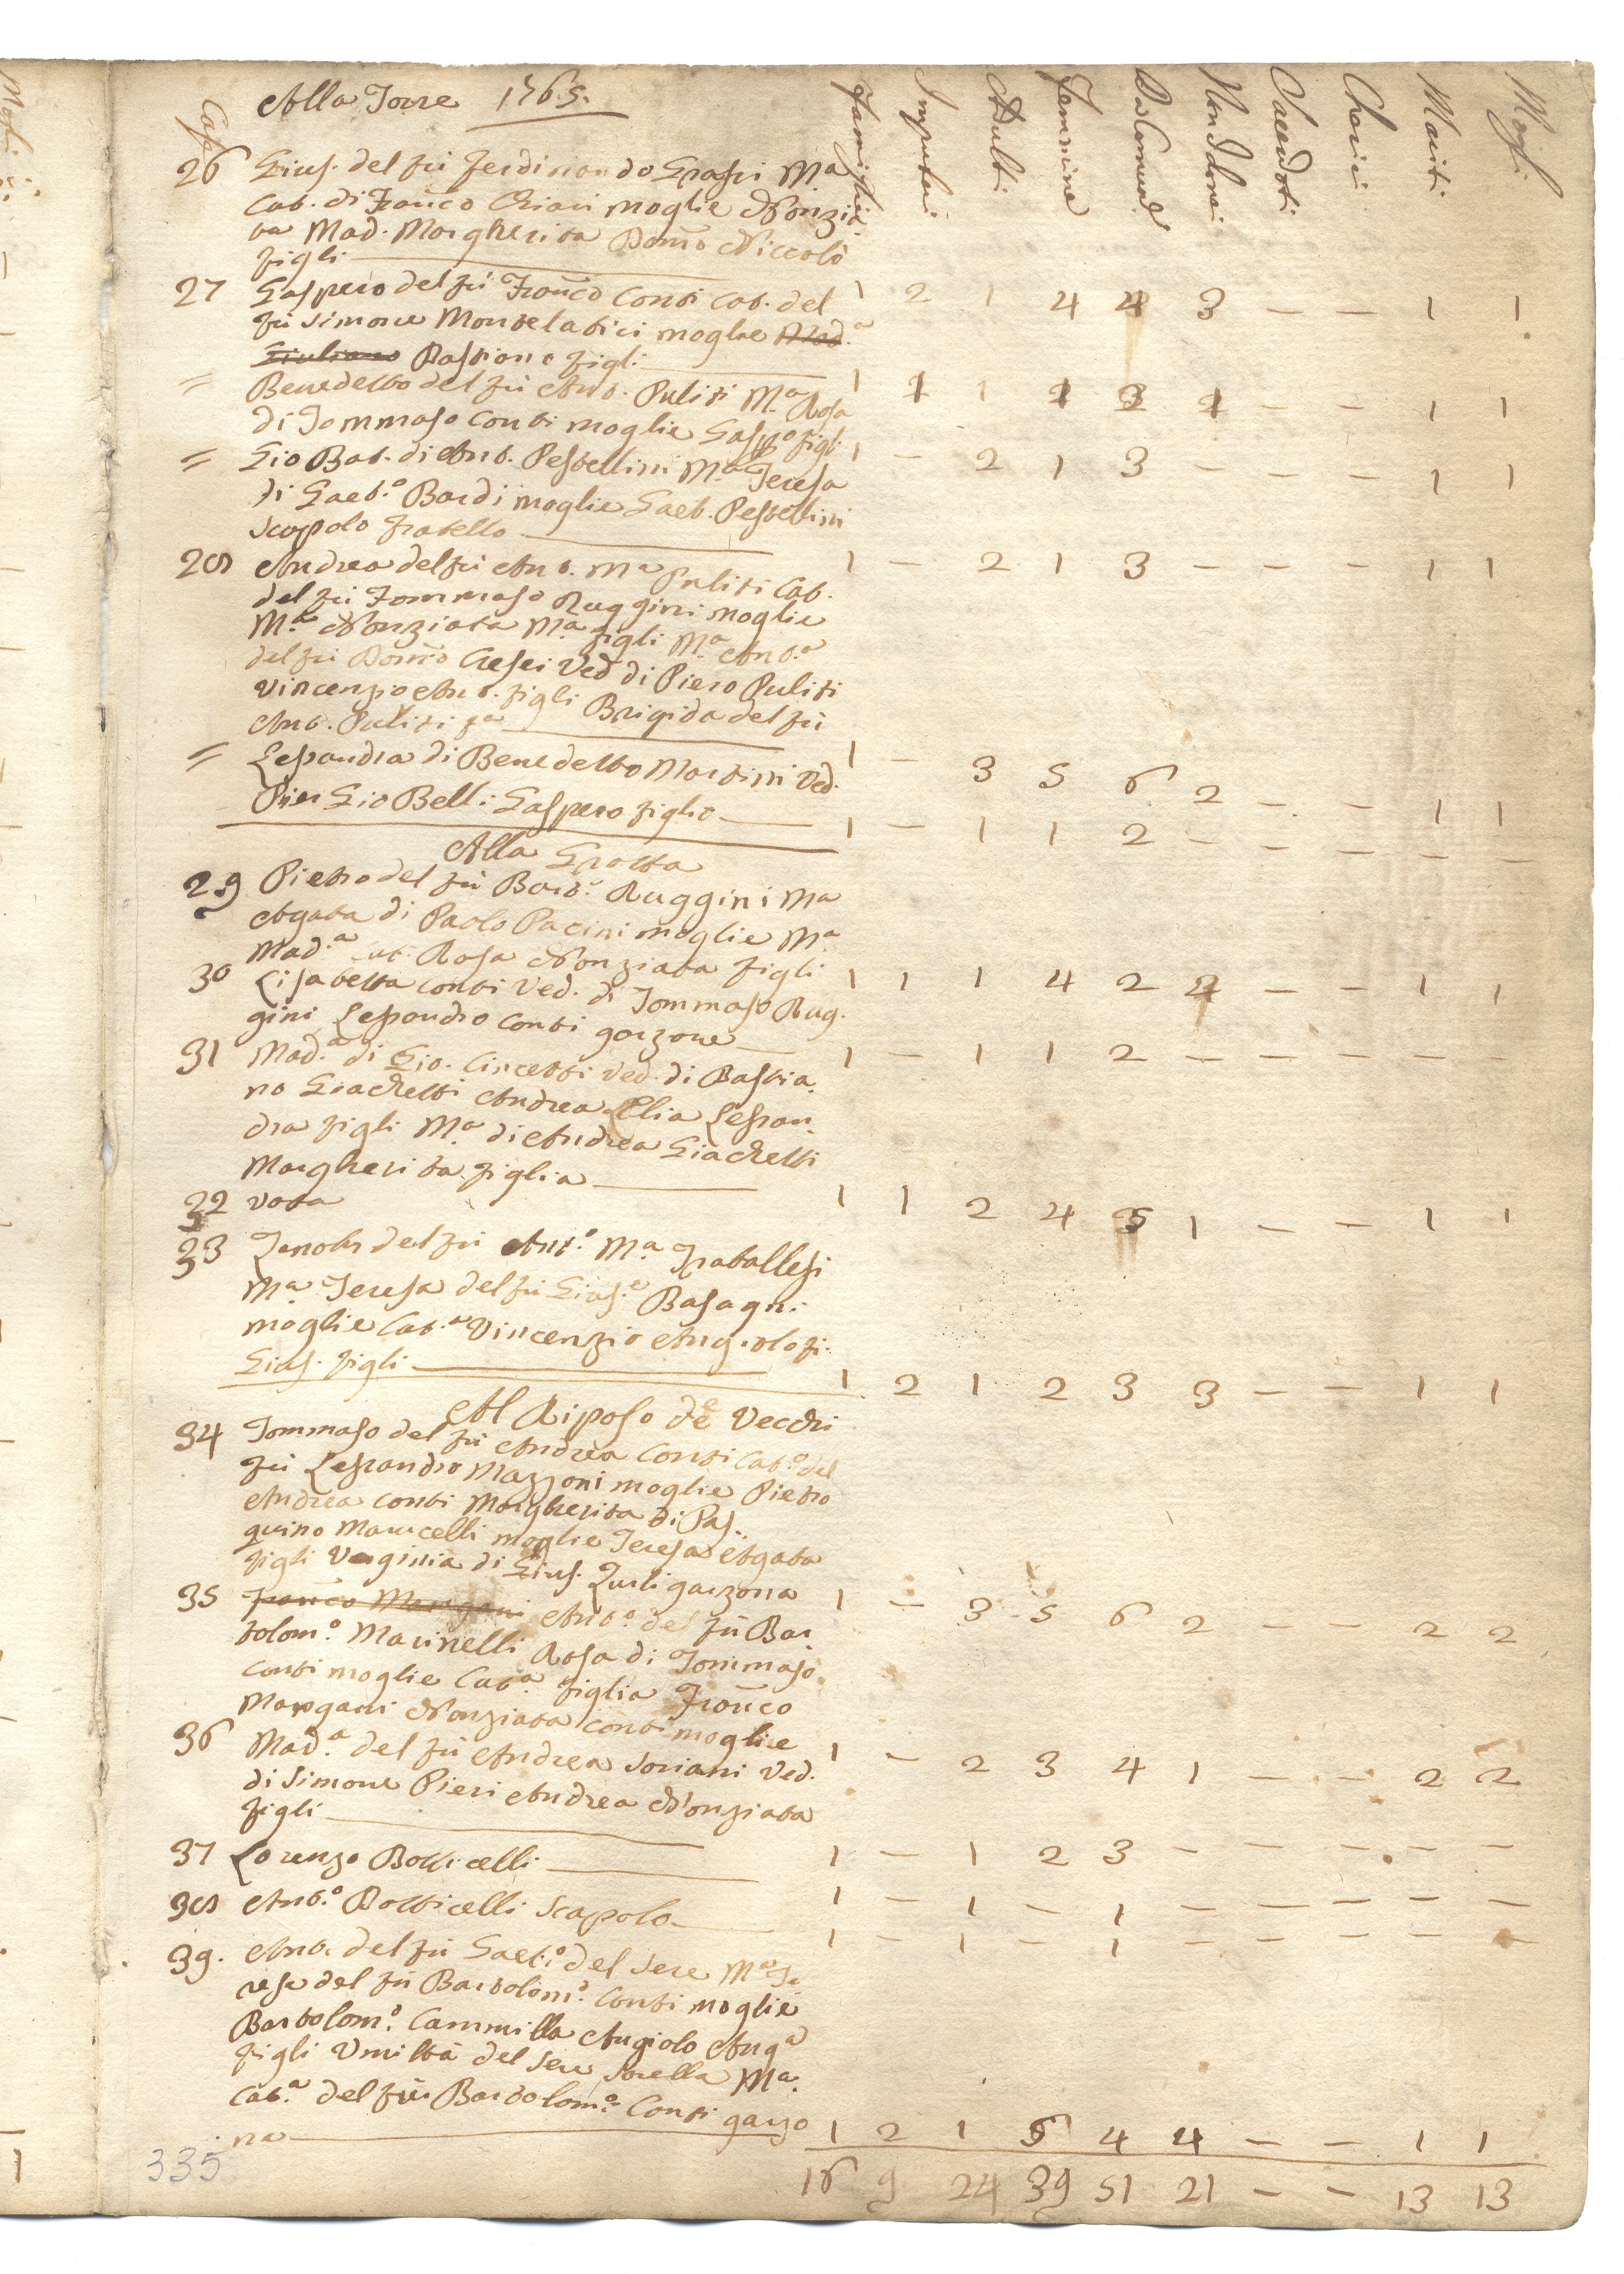 Case Alla Torre 1765. Famiglie Impuberi Adulti Femmine Da Comune Non Idonei Sacerdoti Cherici Mariti Mogli
26 Gius. del fu Ferdinando Grassi Ma
Cat. di Franco Chiari moglie Nonzia
ta Mad. Margherita Domco Niccolò
figli 1 2 1 4 4 3 — — 1 1
27 Gaspero del fu Franco Conti Cat. del
fu Simone Montelatici moglie Mad.a
Giuliano Bastiano figli 1 1 1 1 1 — — 1 1
= Benedetto del fu Ant. Puliti Ma Rosa
di Tommaso Conti moglie Gasp.o figli 1 — 2 1 3 — — — 1 1
= Gio Bat. di Ant. Pestellini Ma Teresa
di Gaet.o Bardi moglie Gaet. Pestellini
scapolo fratello 1 — 2 1 3 — — — 1 1
28 Andrea del fu Ant. Ma Puliti Cat.
del fu Tommaso Ruggini moglie
M.a Nonziata Ma figli M.a Ant.a
del fu Domco Cresci Ved di Piero Puliti
Vincenzio Ant. figli Brigida del fu
Ant. Puliti 1 — 3 5 6 2 — — 1 1
= Lessandra di Benedetto Martini Ved.
Pier Gio Belli Gaspero figlio 1 — 1 1 2 — — — — —
Alla Grotta
29 Pietro del fu Bart.o Ruggini Ma
Agata di Paolo Pacini moglie Ma
Mad.a Cat. Rosa Nonziata figli 1 1 1 4 2 4 — — 1 1
30 Lisabetta Conti Ved. di Tommaso Rug-
gini Lessandro Conti garzone 1 — 1 1 2 — — — — —
31 Mad.a di Gio. Cincetti Ved. di Bastia-
no Giachetti Andrea Elia Lessan-
dra figli M.a di Andrea Giachetti
Margherita figlia 1 1 2 4 5 1 — — 1 1
32 vota
33 Zanobi del fu Ant.o M.a Traballesi
Ma Teresa del fu Gius.e Basagni
moglie Cat.a Vincenzio Angiolo fi-
Gius. figli 1 2 1 2 3 3 — — 1 1
Al Riposo de Vecchi
34 Tommaso del fu Andrea Conti Cat.a del
fu Lessandro Mazzoni moglie Pietro
Andrea Conti Margherita di Pas-
quino Marucelli moglie Teresa Agata
figli Verginia di Gius. Zurli garzona 1 — 3 5 6 2 — — 2 2
35 Franco Mangani Ant.o del fu Bar-
tolom.o Marinelli Rosa di Tommaso
Conti moglie Cat.a figlia Franco
Mangani Nonziata Conti moglie 1 — 2 3 4 1 — — 2 2
36 Mad.a del fu Andrea Soriani Ved.
di Simone Pieri Andrea Nonziata
figli 1 — 1 2 3 — — — — —
37 Lorenzo Botticelli 1 — 1 — 1 — — — — —
38 Ant.o Botticelli Scapolo 1 — 1 — 1 — — — — —
39. Ant. del fu Gaet.o del Sere Ma Te
resa del fu Bartolom.o Conti moglie
Bartolom.o Cammilla Angiolo Ang.a
figli Umiltà del Sere sorella Ma.
Cat.a del fu Bartolom.o Conti garzo
na 1 2 1 5 4 4 — — 1 1
16 9 24 39 51 21 — — 13 13
335